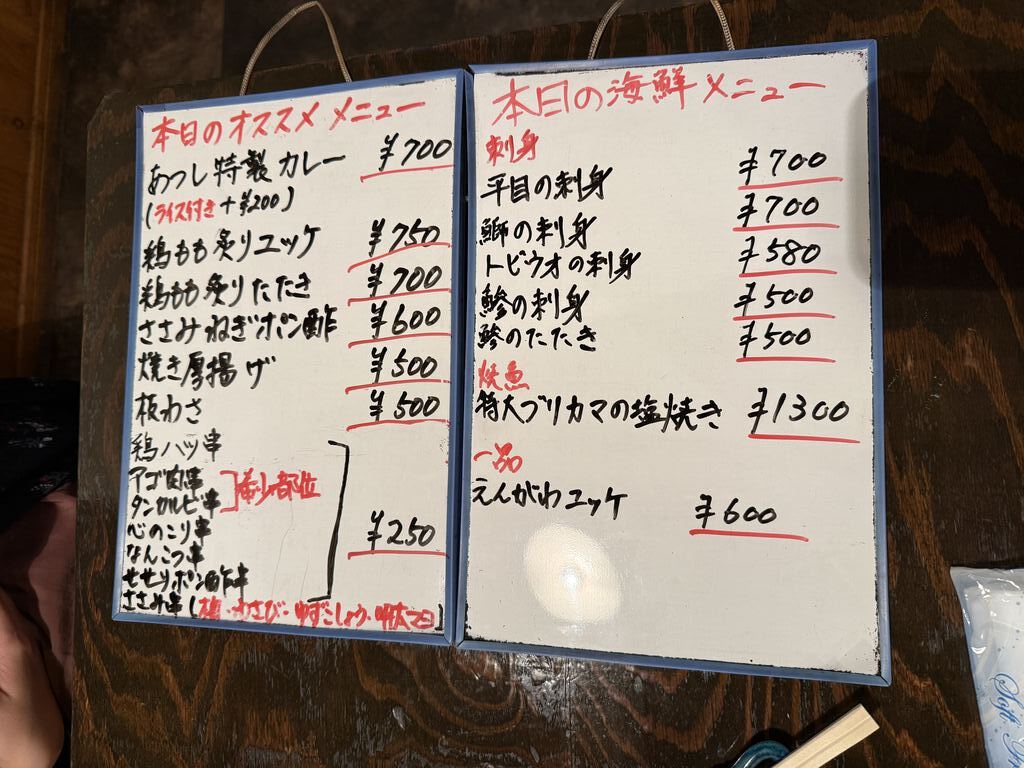 本日のオススメ メニュー
あつし特製カレー ¥700
(ライス付き+¥200)
鶏もも炙りユッケ ¥750
鶏もも炙りたたき ¥700
ささみねぎポン酢 ¥600
焼き厚揚げ ¥500
板わさ ¥500
鶏ハツ串
アゴ肉串
タンカルビ串
希少部位
心のこり串
なんこつ串
¥250
せせりポン酢串
ささみ串(梅・わさび・ゆずこしょう・明太マヨ)
本日の海鮮メニュー
刺身
平目の刺身 ¥700
鰤の刺身 ¥700
トビウオの刺身 ¥580
鯵の刺身 ¥500
鯵のたたき ¥500
焼魚
特大ブリカマの塩焼き ¥1300
一品
えんがわユッケ ¥600
Soft